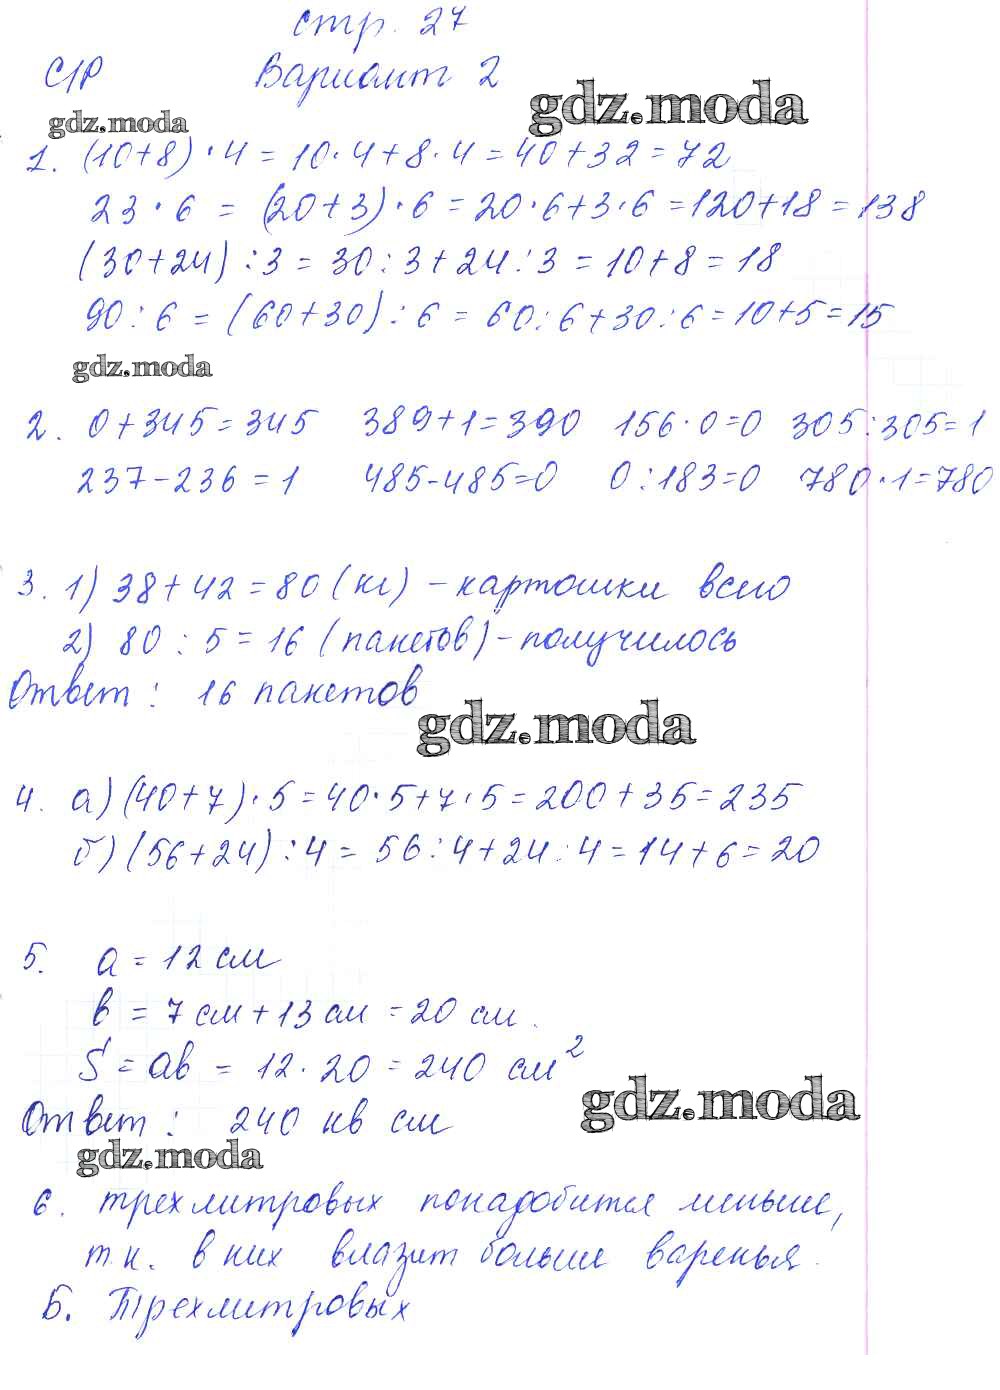 стр. 27
С/Р Вариант 2
gdz.moda
gdz.moda
1. (10+8)·4=10·4+8·4=40+32=72
23·6=(20+3)·6=20·6+3·6=120+18=138
(30+24):3=30:3+24:3=10+8=18
90:6=(60+30):6=60:6+30:6=10+5=15
gdz.moda
2. 0+345=345 389+1=390 156·0=0 305:305=1
237-236=1 485-485=0 0:183=0 780·1=780
3. 1) 38+42=80 (кг) - картошки всего
2) 80:5=16 (пакетов) - получилось
Ответ: 16 пакетов
gdz.moda
4. а) (40+7)·5=40·5+7·5=200+35=235
б) (56+24):4=56:4+24:4=14+6=20
5. а=12 см
в=7 см+13 см=20 см.
S=ав=12·20=240 см²
gdz.moda
Ответ: 240 кв см
gdz.moda
6. трехлитровых понадобится меньше,
т.к. в них влазит больше варенья.
Б. Трехлитровых